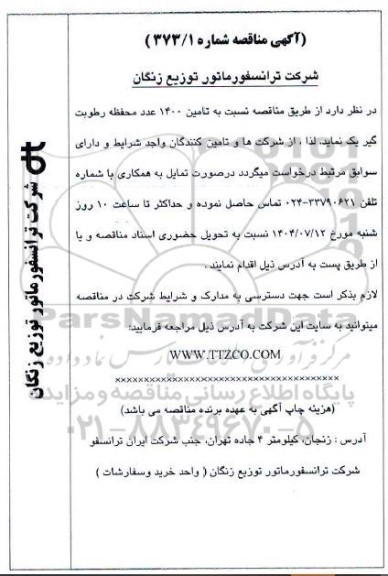 (آگهی مناقصه شماره ۳۷۳/۱ )
شرکت ترانسفورماتور توزیع زنگان
در نظر دارد از طریق مناقصه نسبت به تامین ۱۴۰۰ عدد محفظه رطوبت
گیر یک نماید. لذا ، از شرکت ها و تامین کنندگان واجد شرایط و دارای
سوابق مرتبط درخواست میگردد درصورت تمایل به همکاری با شماره
تلفن ۳۳۷۹۰۶۲۱-۰۲۴ تماس حاصل نموده و حداکثر تا ساعت ۱۰ روز
شنبه مورخ ۱۴۰۴/۰۷/۱۲ نسبت به تحویل حضوری اسناد مناقصه و یا
از طریق پست به آدرس ذیل اقدام نمایند .
لازم بذکر است جهت دسترسی به مدارک و شرایط شرکت در مناقصه
میتوانید به سایت این شرکت به آدرس ذیل مراجعه فرمایید:
WWW.TTZCO.COM
xxxxxxxxxxxxxxxxxxxxxxxxxxxxxxxxxxxxxx
(هزینه چاپ آگهی به عهده برنده مناقصه می باشد)
آدرس : زنجان، کیلومتر ۴ جاده تهران، جنب شرکت ایران ترانسفو
شرکت ترانسفورماتور توزیع زنگان ( واحد خرید وسفارشات )
dt شرکت ترانسفورماتور توزیع زنگان
ParsNamadData
پایگاه اطلاع رسانی مناقصه و مزایده
۰۲۱-۸۸۳۴۹۶۷۰-۵